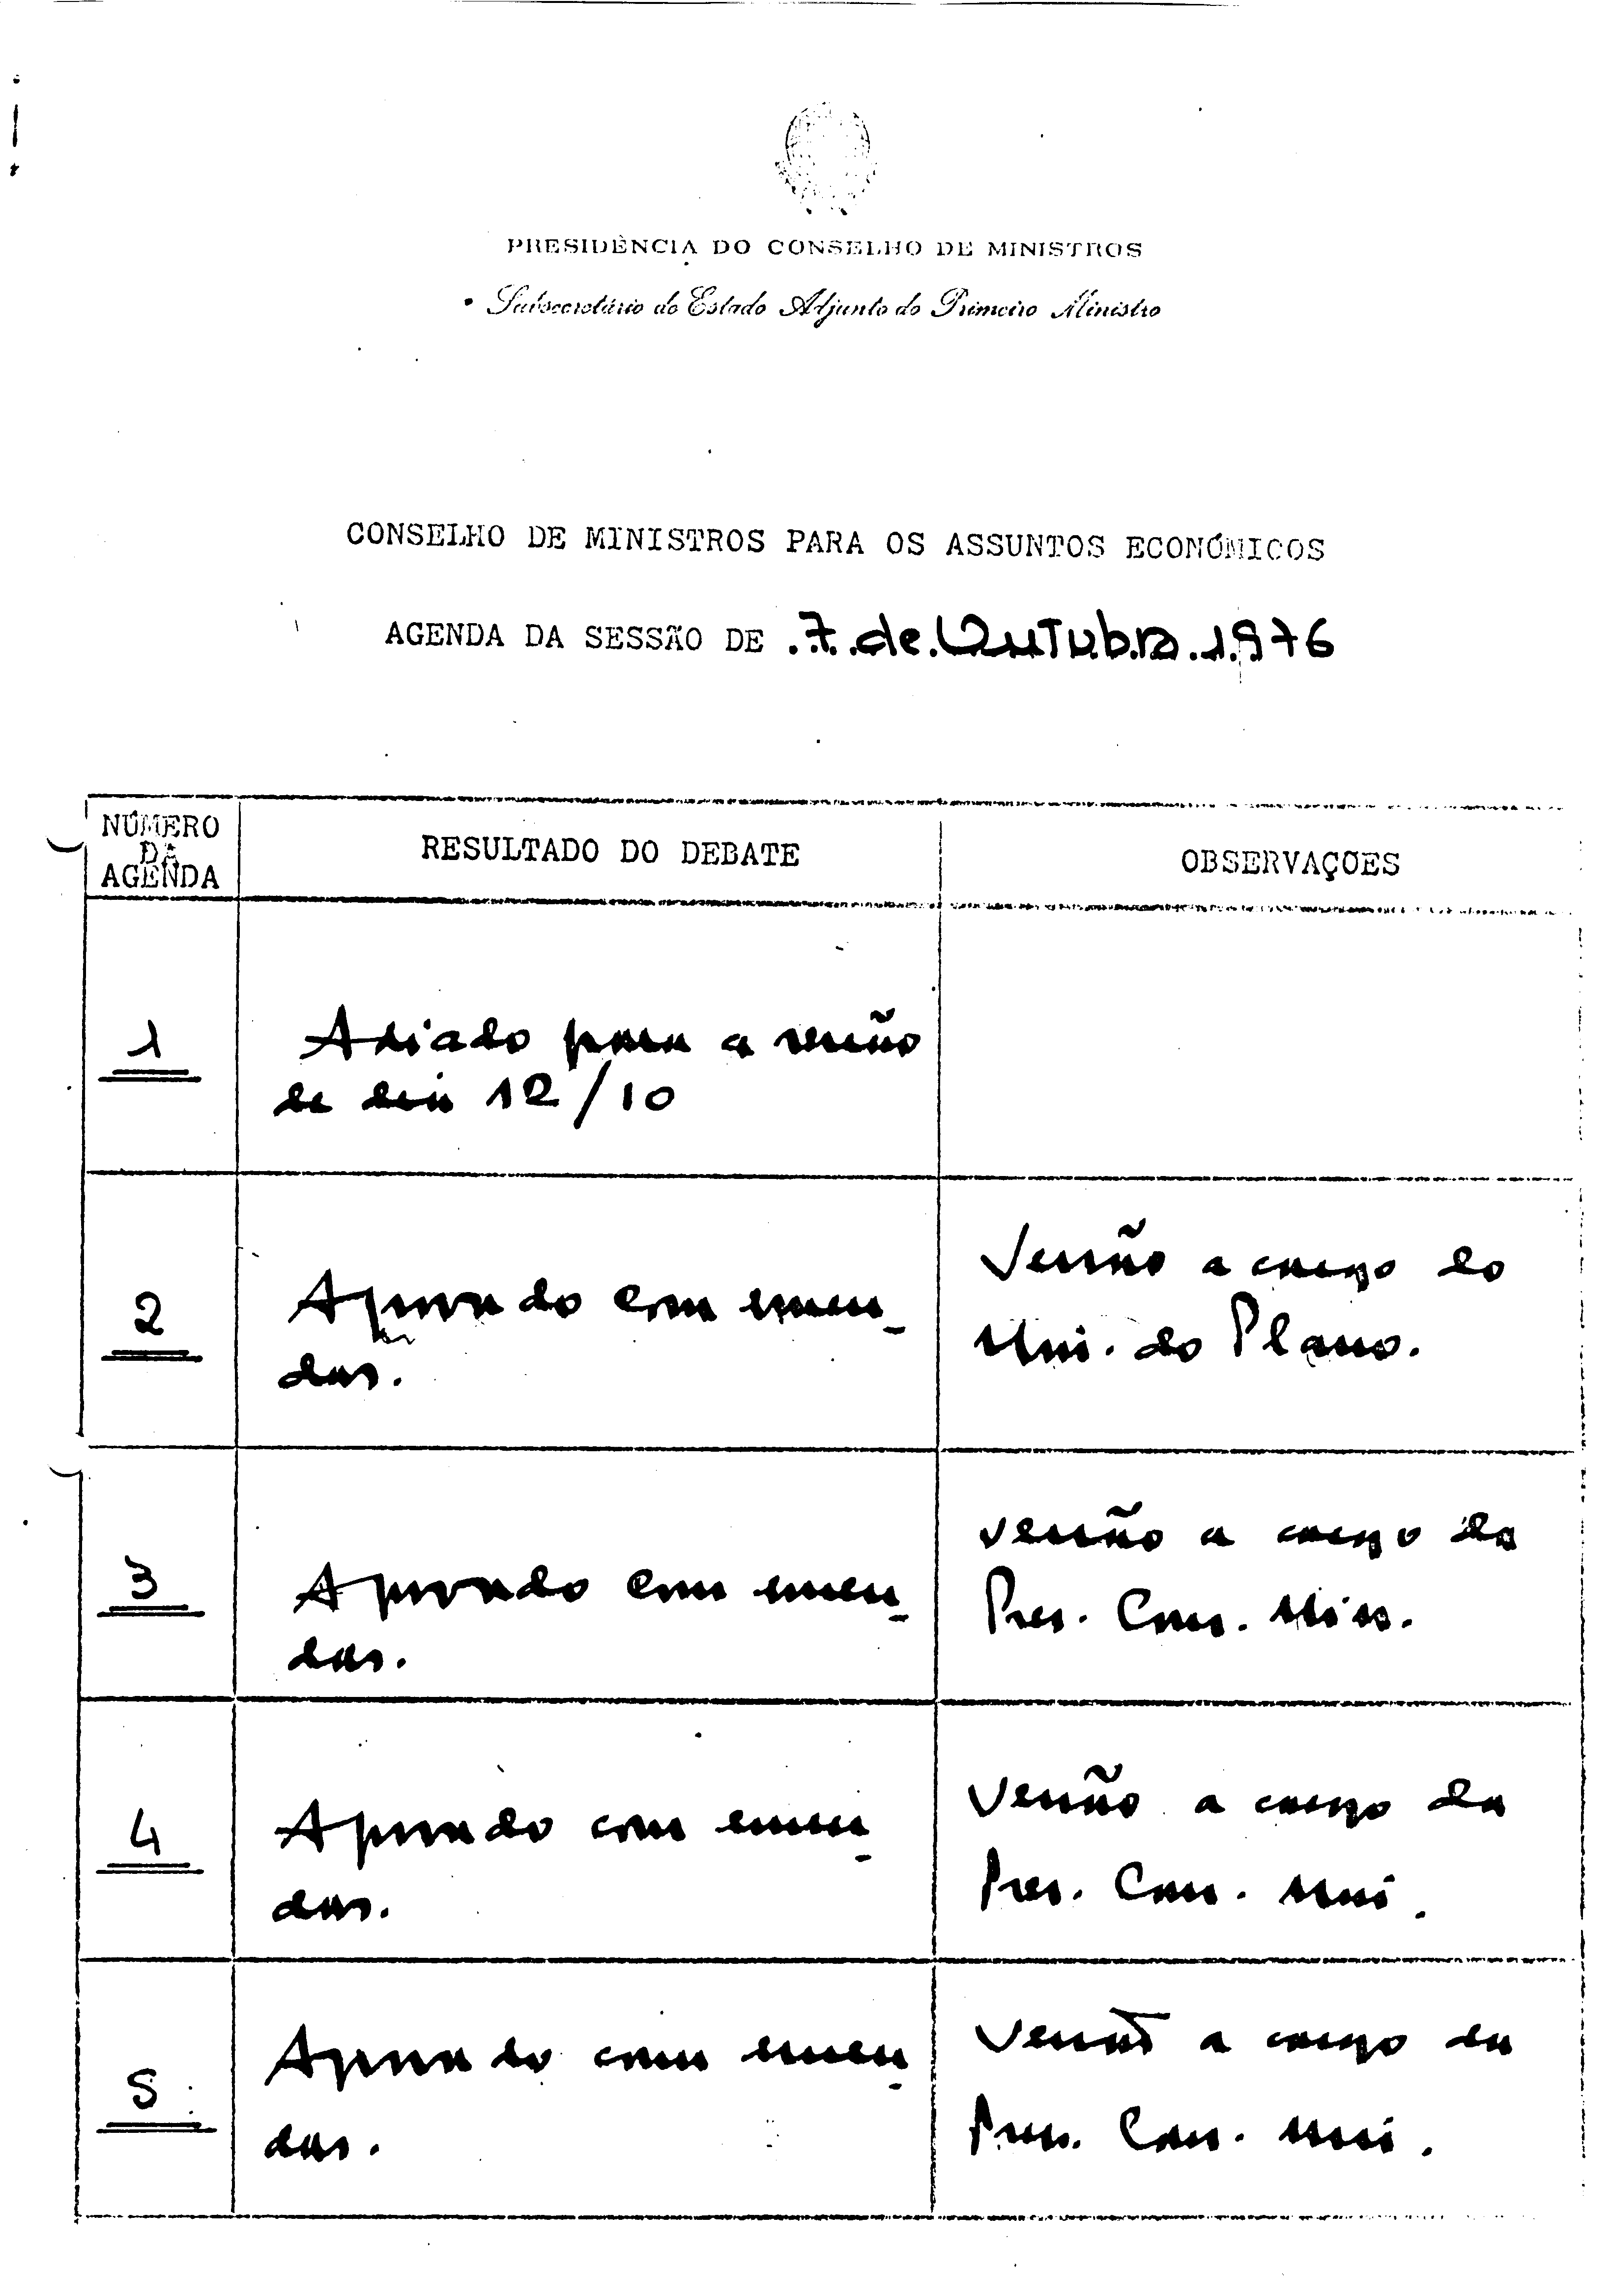 PRESIDÊNCIA DO CONSELHO DE MINISTROS
Subsecretário de Estado Adjunto do Primeiro Ministro
CONSELHO DE MINISTROS PARA OS ASSUNTOS ECONÓMICOS
AGENDA DA SESSÃO DE 7 de Outubro 1976
NÚMERO
DA
AGENDA
RESULTADO DO DEBATE
OBSERVAÇÕES
1
Adiado para a reunião
de dia 12/10
2
Aprovado com emen-
das.
Versão a cargo do
Min. do Plano.
3
Aprovado com emen-
das.
Versão a cargo da
Pres. Cons. Min.
4
Aprovado com emen-
das.
Versão a cargo da
Pres. Cons. Min.
5
Aprovado com emen-
das.
Versão a cargo da
Pres. Cons. Min.